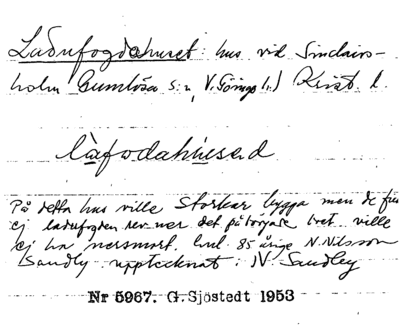 Ladufogdahuset: hus vid Sinclairs-
holm Gumlösa s:n, V. Göinge h:d Krist. l.
làfodahúsad
På detta hus ville storkar bygga men de fick
ej ladufogden rev ner det påbörjade boet ville
ej ha nersmort. enl. 85 årige N. Nilsson
Sandby upptecknat: N. Sandby
Nr 5967. G. Sjöstedt 1953